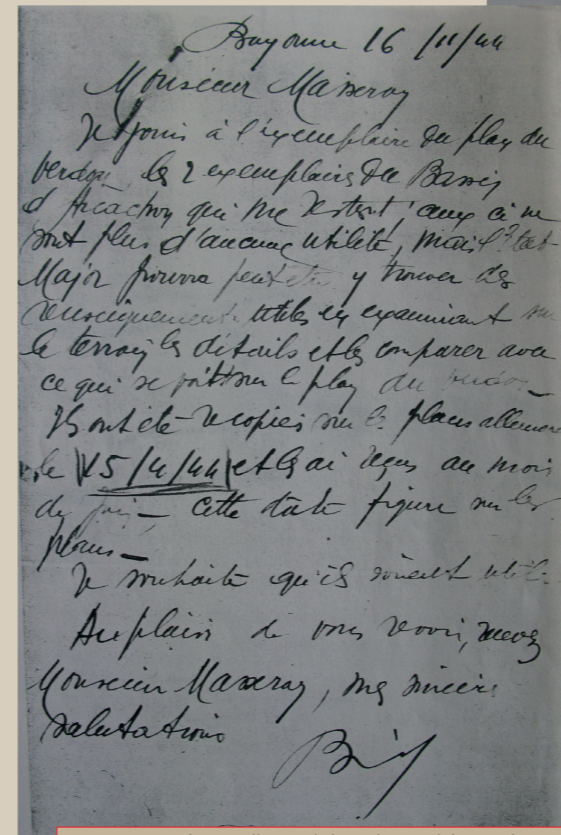 Bayonne 16/11/44
Monsieur Masseray
Je joins à l'exemplaire du plan du
verdon les 2 exemplaires du Bassin
d'Arcachon qui me restent, ceux ci ne
sont plus d'aucune utilité, mais l'Etat
Major pourra peut être y trouver des
renseignements utiles en examinant sur
le terrain les détails et les comparer avec
ce qui se voit sur le plan du verdon_
Ils ont été recopiés sur les plans allemands
le 15/4/44 et les ai reçus au mois
de juin_ Cette date figure sur les
plans_
Je souhaite qu'ils soient utiles
Au plaisir de vous revoir, recevez
Monsieur Masseray, mes sincères
salutations